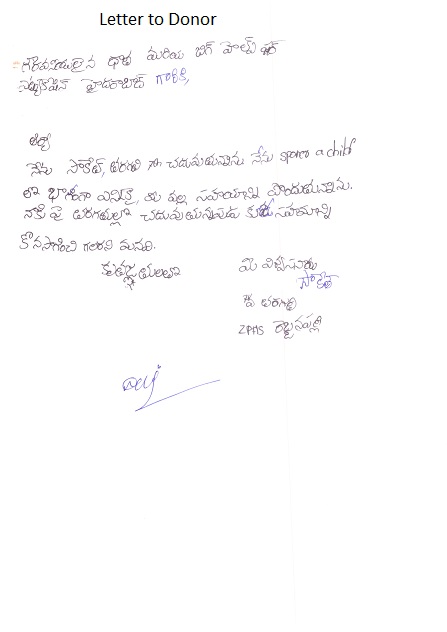 Letter to Donor
గౌరవనీయులైన దాత మరియు బిగ్ హెల్ప్ ఫర్
ఎడ్యుకేషన్ హైదరాబాద్ గారికి,
ఆర్య
నేను సాకేత్, తరగతి చదువుతున్నాను నేను sponsor a child
లో భాగంగా ఎన్నికై, మీ వల్ల సహాయాన్ని పొందుతున్నాను.
నాకు పై తరగతుల్లో చదువుతున్నపుడు కూడా సహాయాన్ని
కొనసాగించ గలరని మనవి.
కృతజ్ఞతలతో
మీ విశ్వసనీయ
సాకేత్
వ తరగతి
ZPHS